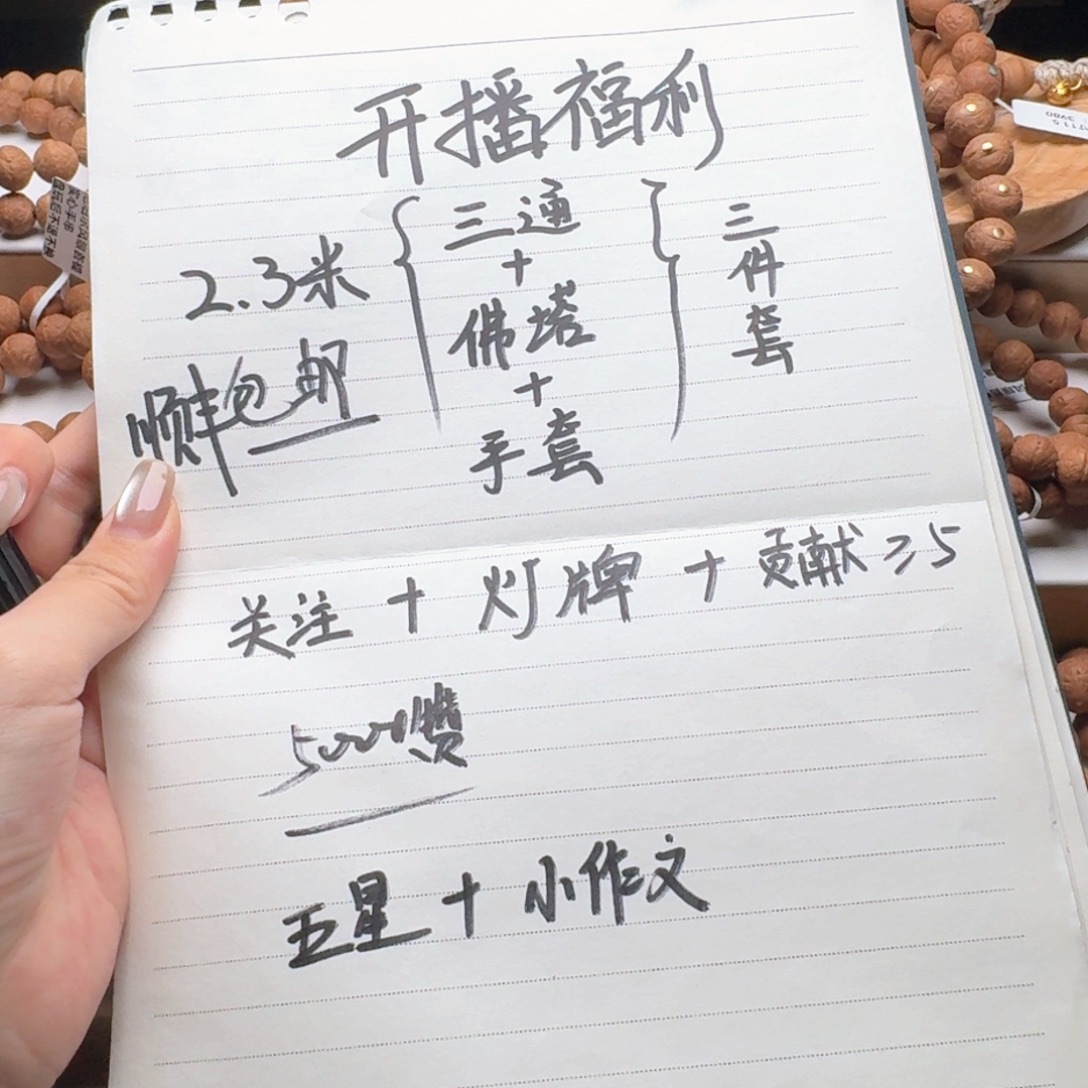 开播福利
2.3米
顺丰包邮
三通
+
佛塔
+
手套
三件套
关注 + 灯牌 + 贡献 ≥5
5000赞
五星 + 小作文
3980